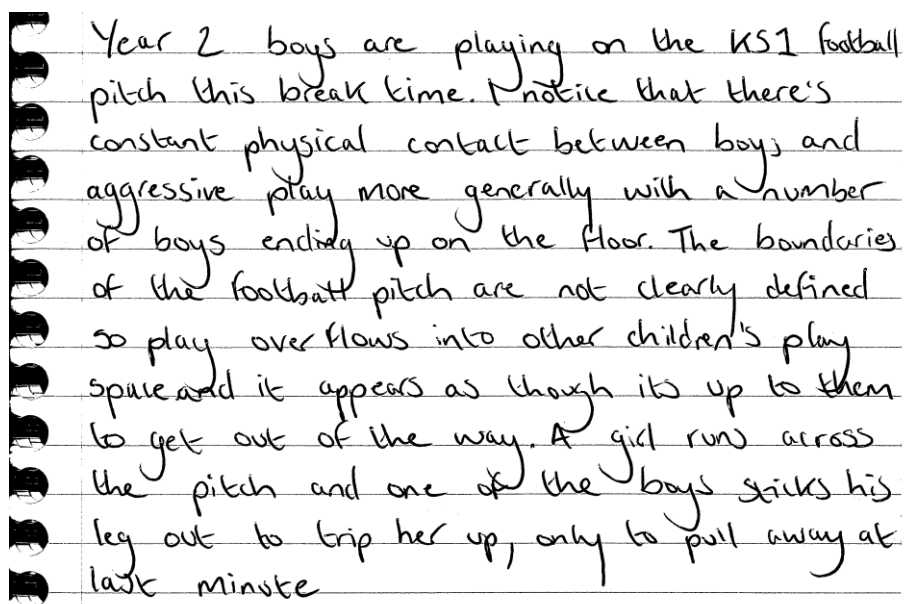 Year 2 boys are playing on the KS1 football
pitch this break time. I notice that there's
constant physical contact between boys and
aggressive play more generally with a number
of boys ending up on the floor. The boundaries
of the football pitch are not clearly defined
so play overflows into other children's play
space and it appears as though its up to them
to get out of the way. A girl runs across
the pitch and one of the boys sticks his
leg out to trip her up, only to pull away at
last minute